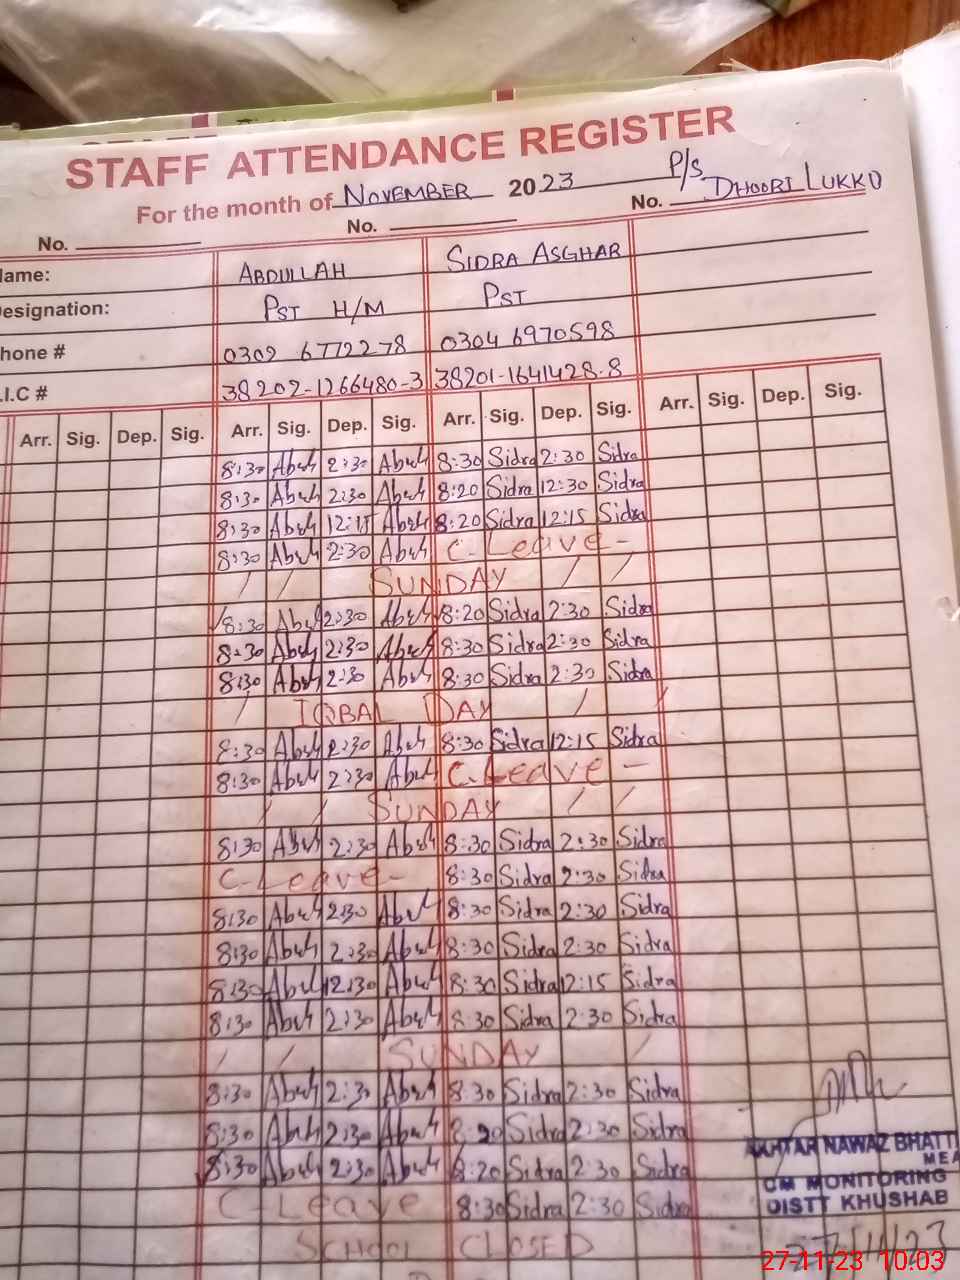 STAFF ATTENDANCE REGISTER
For the month of NOVEMBER 2023 P/S DHOORI LUKKO
No. No. No.
Name: ABDULLAH SIDRA ASGHAR
Designation: PST H/M PST
Phone # 0302 6772278 0304 6970598
I.C # 38202-1266480-3 38201-1641428-8
Arr. Sig. Dep. Sig. Arr. Sig. Dep. Sig. Arr. Sig. Dep. Sig. Arr. Sig. Dep. Sig.
8:30 2:30 8:30 Sidra 2:30 Sidra
8:30 2:30 8:20 Sidra 12:30 Sidra
8:30 12:15 8:20 Sidra 12:15 Sidra
8:30 2:30 C-Leave-
/ / SUNDAY / /
8:30 2:30 8:20 Sidra 2:30 Sidra
8:30 2:30 8:30 Sidra 2:30 Sidra
8:30 2:30 8:30 Sidra 2:30 Sidra
/ IQBAL DAY / /
8:30 2:30 8:30 Sidra 12:15 Sidra
8:30 2:30 C-Leave -
/ / SUNDAY / /
8:30 2:30 8:30 Sidra 2:30 Sidra
C-Leave- 8:30 Sidra 2:30 Sidra
8:30 2:30 8:30 Sidra 2:30 Sidra
8:30 2:30 8:30 Sidra 2:30 Sidra
8:30 12:30 8:30 Sidra 12:15 Sidra
8:30 2:30 8:30 Sidra 2:30 Sidra
/ / SUNDAY /
8:30 2:30 8:30 Sidra 2:30 Sidra
8:30 2:30 8:20 Sidra 2:30 Sidra
8:30 2:30 8:20 Sidra 2:30 Sidra
C-Leave 8:30 Sidra 2:30 Sidra
SCHOOL CLOSED
AKHTAR NAWAZ BHATTI
MEA
CM MONITORING
DISTT KHUSHAB
27/11/23
27-11-23 10:03